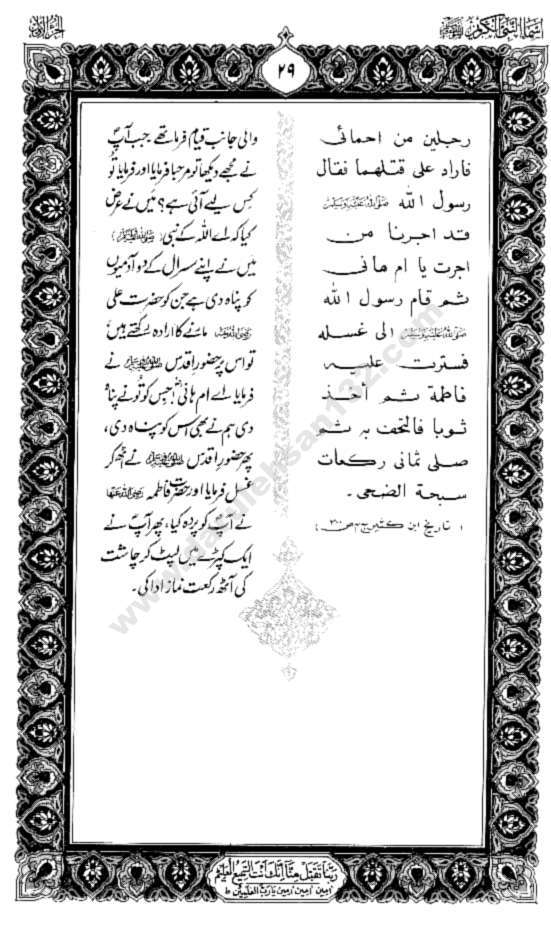 اسماء النبی الکریم ﷺ
الجزء الاول
۲۹
رجلين من احمائى
فاراد على قتلهما فقال
رسول الله ﷺ
قد اجرنا من
اجرت يا ام هانى
ثم قام رسول الله
ﷺ الى غسله
فسترت عليه
فاطمة ثم اخذ
ثوبا فالتحف به ثم
صلى ثمانى ركعات
سبحة الضحى۔
( تاریخ ابن کثیر ج ۴ ص ۳۰۰ )
والی جانب قیام فرما تھے جب آپؐ
نے مجھے دیکھا تو مرحبا فرمایا اور فرمایا تُو
کس لیے آئی ہے؟ میں نے عرض
کیا کہ اے اللہ کے نبی (ﷺ)
میں نے اپنے سسرال کے دو آدمیوں
کو پناہ دی ہے جن کو حضرت علی
رضی اللہ عنہ مارنے کا ارادہ رکھتے ہیں؛
تو اس پر حضور اقدس ﷺ نے
فرمایا اے ام ہانیؓ! جس کو تُو نے پناہ
دی ہم نے بھی اس کو پناہ دی،
پھر حضور اقدس ﷺ نے اٹھ کر
غسل فرمایا اور حضرت فاطمہ رضی اللہ عنہا
نے آپؐ کو پردہ کیا، پھر آپؐ نے
ایک کپڑے میں لپٹ کر چاشت
کی آٹھ رکعت نماز ادا کی۔
ربنا تقبل منا انك انت السميع العليم
امين امين امين يا رب العلمين ط